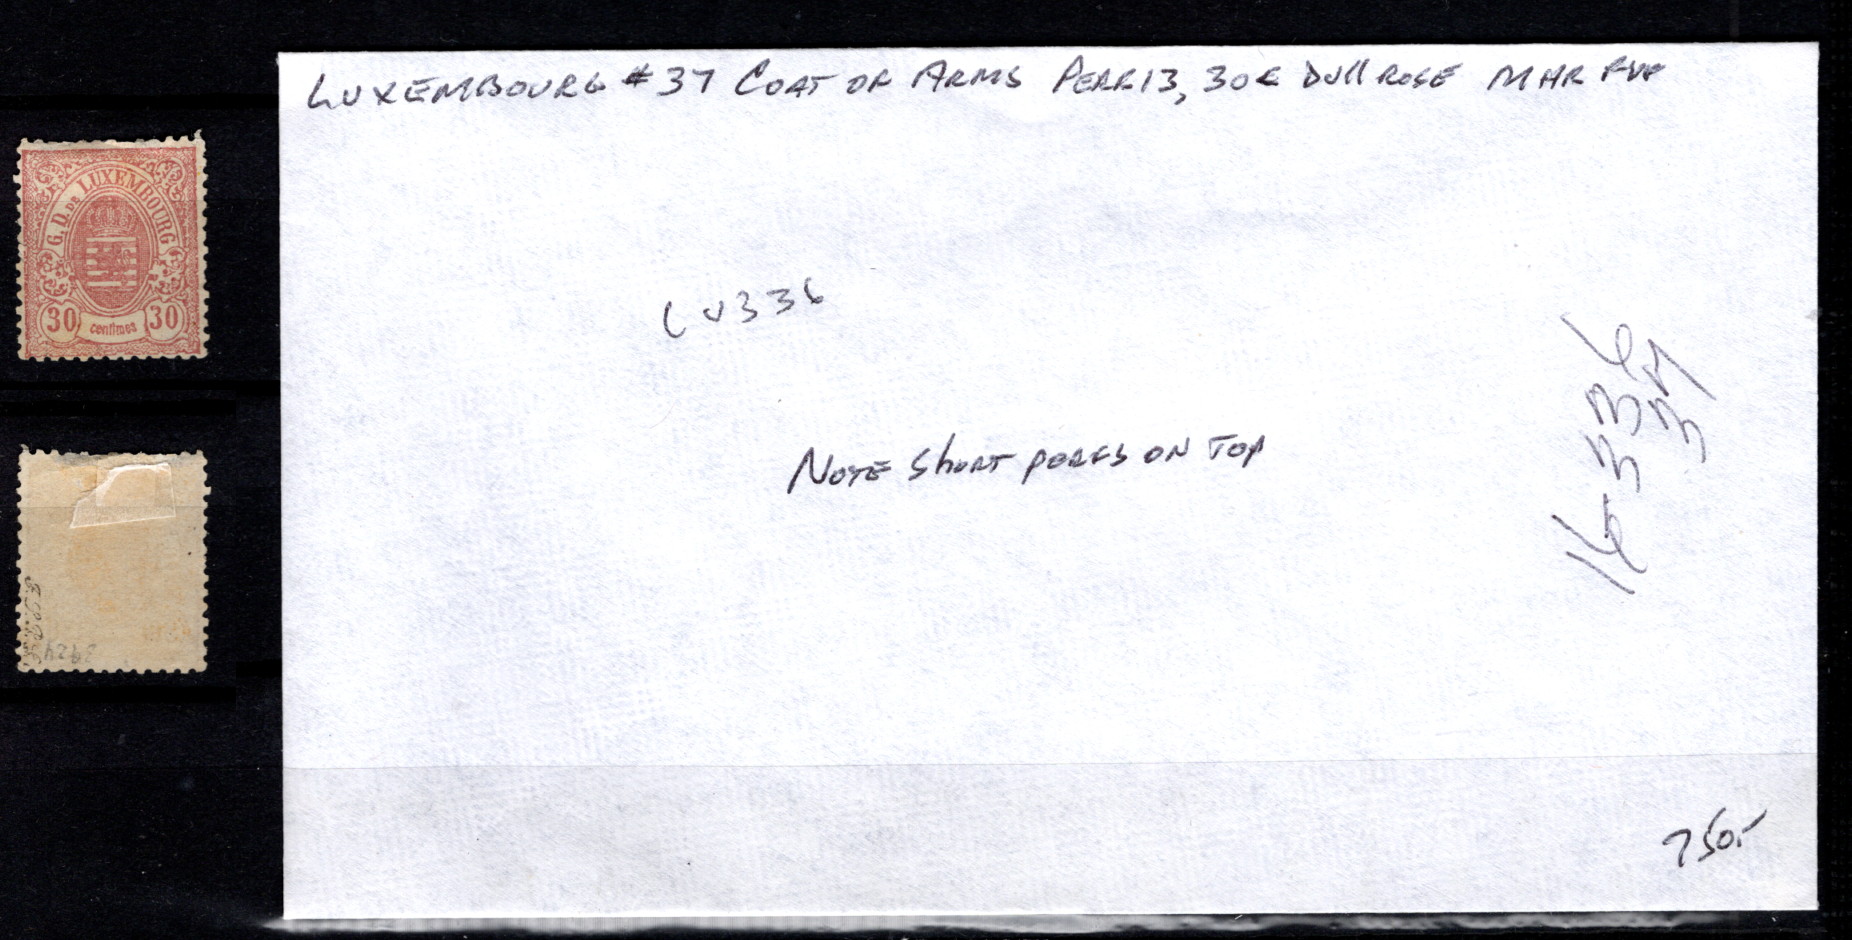 LUXEMBOURG #37 COAT OF ARMS PERF13, 30c DULL ROSE MHR FVF
G.D. DE LUXEMBOURG
30 centimes 30
LU336
NOTE SHORT PERFS ON TOP
37
750.-